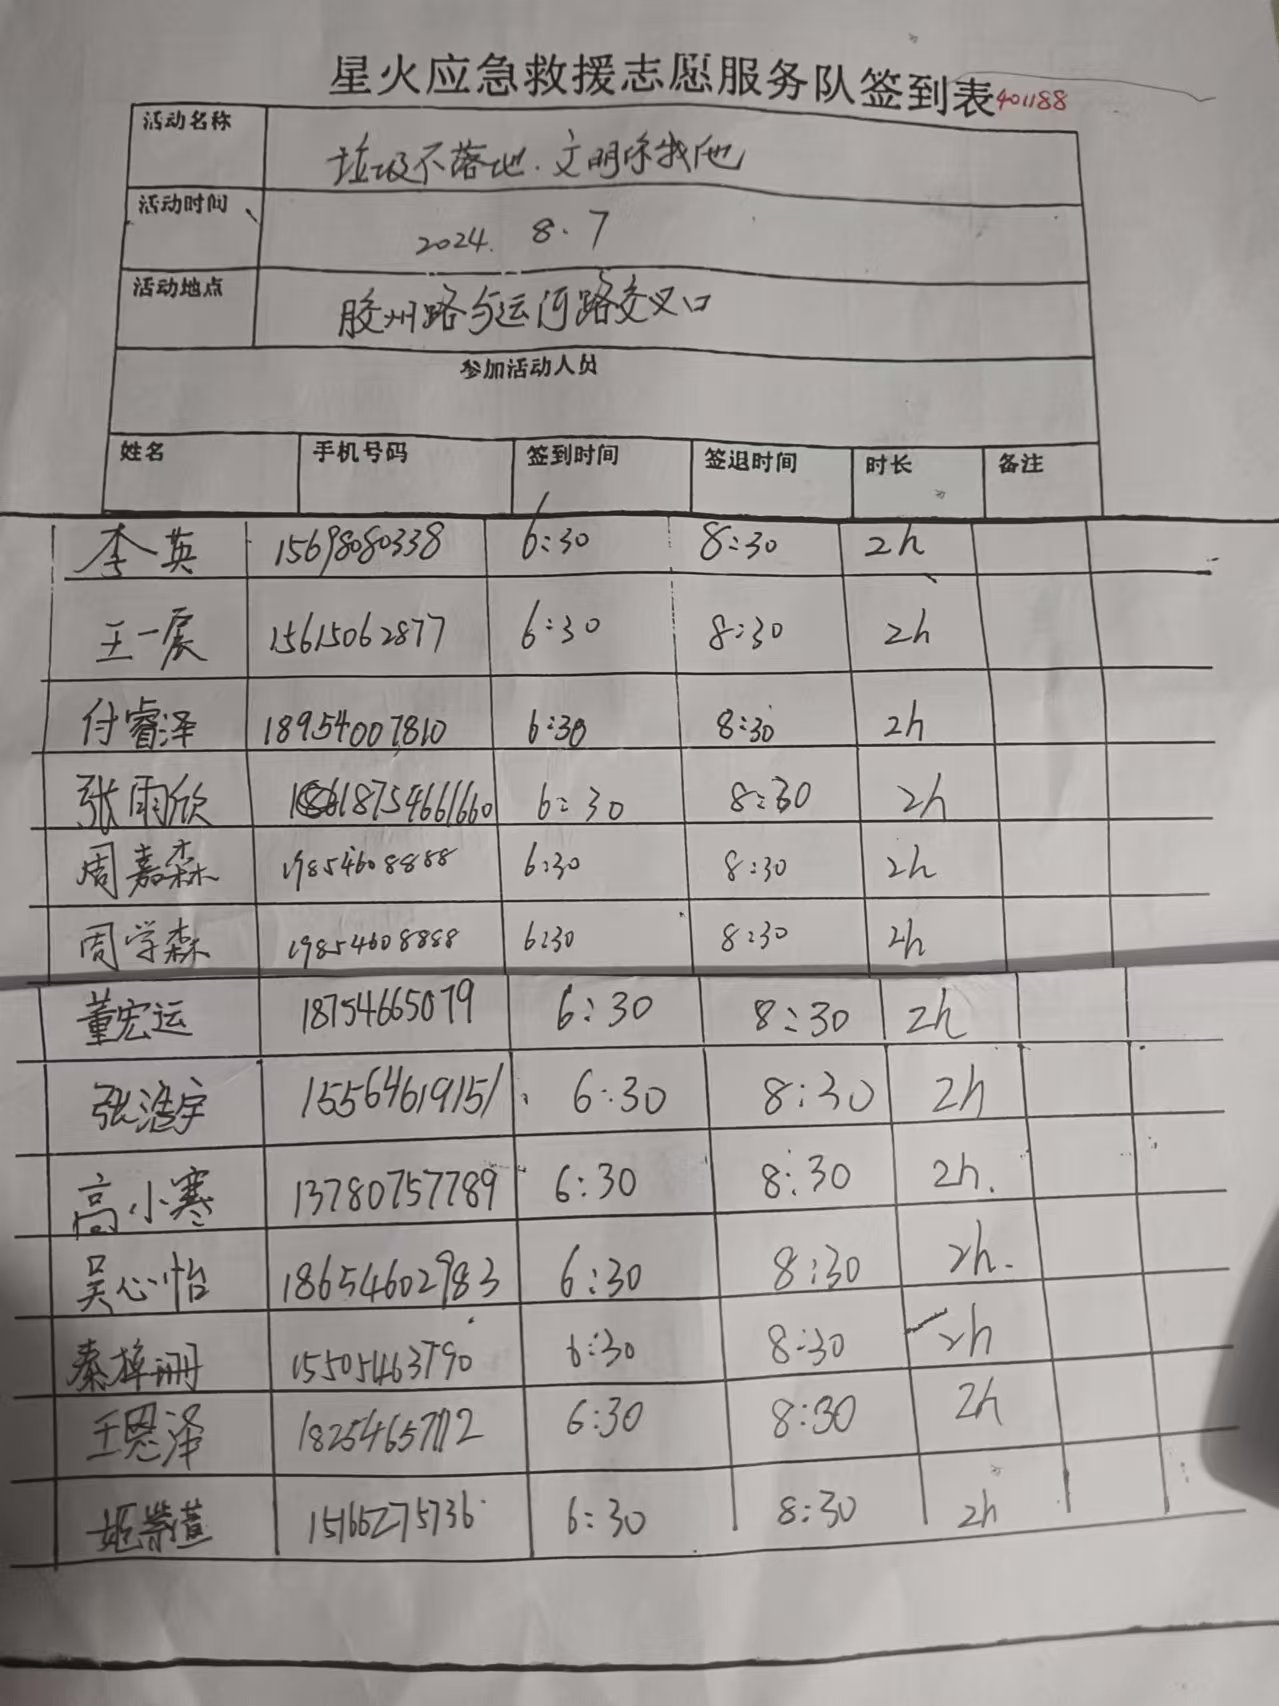 星火应急救援志愿服务队签到表401188
活动名称 垃圾不落地.文明你我他
活动时间 2024. 8.7
活动地点 胶州路与运河路交叉口
参加活动人员
姓名 手机号码 签到时间 签退时间 时长 备注
李英 15698080338 6:30 8:30 2h
王一宸 15615062877 6:30 8:30 2h
付睿泽 18954007810 6:30 8:30 2h
张雨欣 18754661660 6:30 8:30 2h
周嘉森 19854608888 6:30 8:30 2h
周学森 19854608888 6:30 8:30 2h
董宏运 18754665079 6:30 8:30 2h
张浩宇 15564619151 6:30 8:30 2h
高小寒 13780757789 6:30 8:30 2h.
吴心怡 18654602983 6:30 8:30 2h.
秦梓珊 15505463790 6:30 8:30 2h
王恩泽 6:30 8:30 2h
姬紫萱 15166275736 6:30 8:30 2h